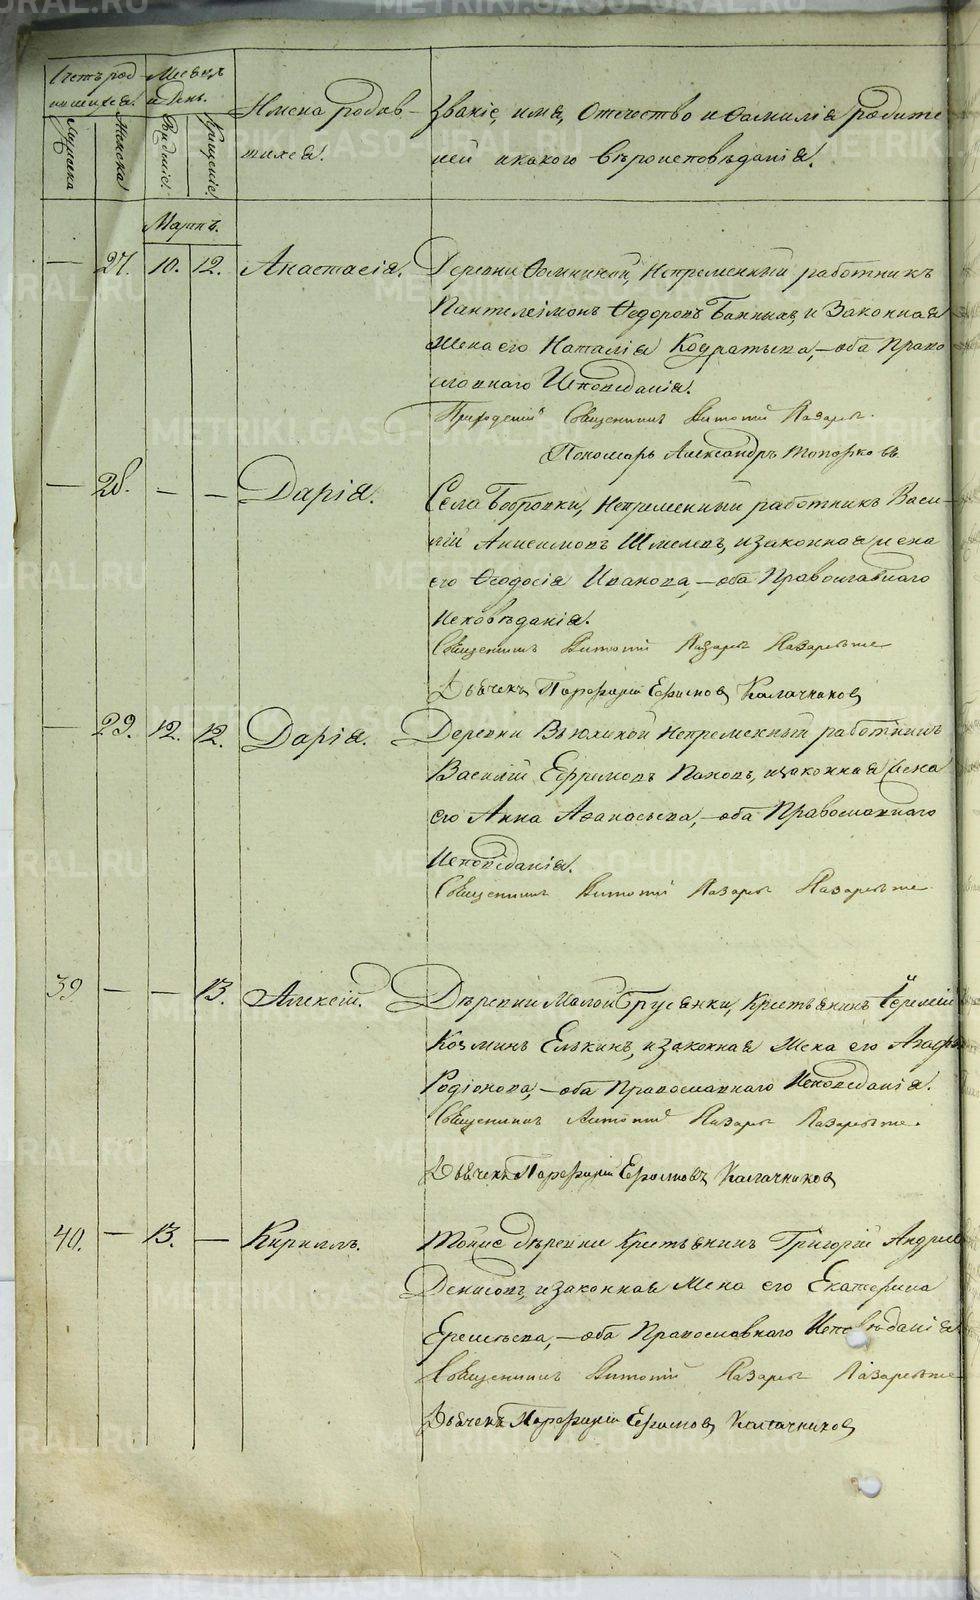 Счетъ род- Месецъ
ившихся. и День.
Имена родив- Званіе, имя, Отчество и Фамилія родите-
шихся. лей и какого Вѣроисповѣданія.
Мужеска Женска Крещенія
Мартъ.
— 27. 10. 12. Анастасія. Деревни Фомининой, Непременный работникъ
Пантелеімонъ Ѳедоровъ Банныхъ, и Законная
Жена его Наталія Кодратьева, — оба Право-
славнаго Исповеданія.
Священникъ Антоній Лазаре-
Пономарь Александръ Топорковъ.
— 28. — — Дарія. Села Бобровки, Непременный работникъ Васи-
лій Анисимовъ Шмелевъ, и законная жена
его Ѳеодосія Иванова, — оба Православнаго
Исповѣданія.
Священникъ Антоній Лазаре
Дьячекъ Порфирій Калачниковъ
— 29. 12. 12. Дарія. Деревни Вьюхиной Непременный работникъ
Василій Ефримовъ Поповъ, и законная Жена
его Анна Аѳанасьева, — оба Православнаго
Исповѣданія.
Священникъ Антоній Лазаре
39 — — 13. Алексій. Дѣревни Малой Брусянки, Крестьянинъ Іеремій
Козминъ Елькинъ, и законная Жена его Агаф
Родіонова, — оба Православнаго Исповеданія.
Священникъ Антоній Лазаре
Дьячекъ Порфирій Калачниковъ
40. — 13. — Кириллъ. Тойже дѣревни Крестьянинъ Григорій Андрее
Денисовъ, и законная Жена его Екатерина
Еремѣева, — оба Православнаго Исповѣданія
Священникъ Антоній Лазаре
Дьячекъ Порфирій Калачниковъ
METRIKI.GASO-URAL.RU